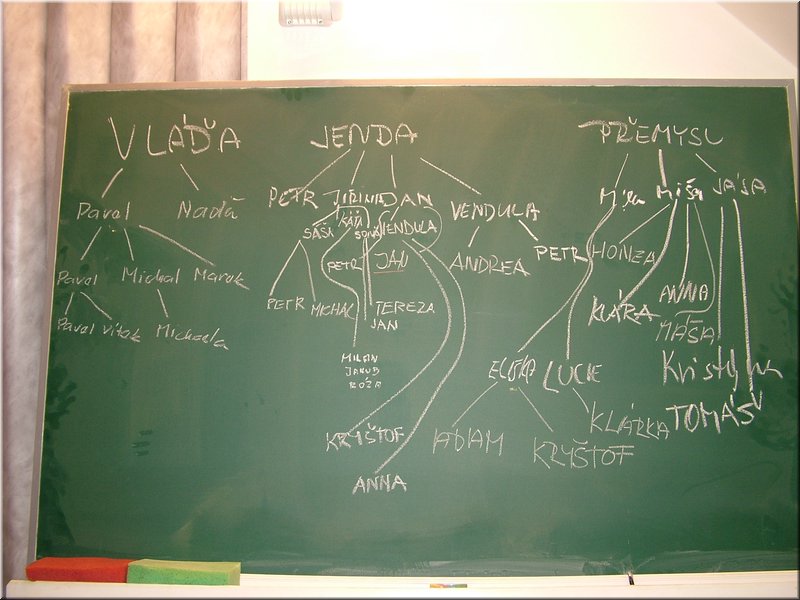 VLÁĎA JENDA PŘEMYSL
PETR JIŘINA DAN Míla Míša JÁJA
Pavel Naďa VENDULA
SÁŠA KÁŤA SOŇA VENDULA
PETR JAN ANDREA PETR HONZA
Pavel Michal Marek
PETR MICHAL TEREZA KLÁRA ANNA
JAN
Pavel Vítek Michaela MÁŠA
MILAN
JAKUB
RÓZA
ELIŠKA LUCIE Kristýna
KLÁRKA TOMÁŠ
KRYŠTOF ADAM KRYŠTOF
ANNA